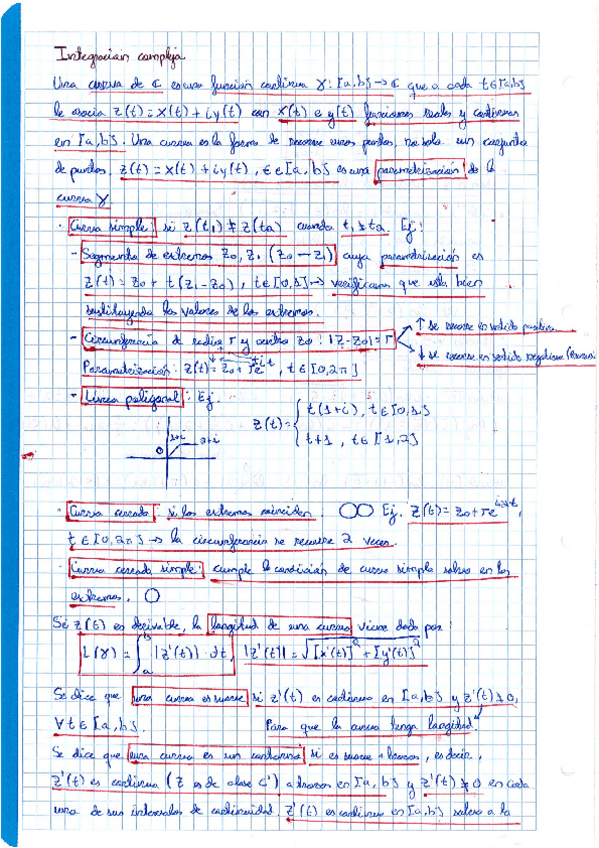 Integración compleja
Una curva de ℂ es una función continua γ: [a,b] → ℂ que a cada t∈[a,b]
le asocia z(t) = x(t) + iy(t) con x(t) e y(t) funciones reales y continuas
en [a,b]. Una curva es la forma de recorrer unos puntos, no solo un conjunto
de puntos. z(t) = x(t) + iy(t), t∈[a,b] es una parametrización de la
curva γ.
· Curva simple: si z(t₁) ≠ z(t₂) cuando t₁ ≠ t₂. Ej:
- Segmento de extremos z₀, z₁ (z₀ → z₁) cuya parametrización es
z(t) = z₀ + t(z₁ - z₀), t∈[0,1] → verificamos que está bien
sustituyendo los valores de los extremos.
- Circunferencia de radio r y centro z₀: |z - z₀| = r
↑ se recorre en sentido positivo
↓ se recorre en sentido negativo
Parametrización: z(t) = z₀ + re^{±it}, t∈[0,2π]
- Línea poligonal: Ej.
z(t) = { t(1+i), t∈[0,1]
t+i, t∈[1,2]
1+i 2+i
0
· Curva cerrada: si los extremos coinciden. Ej. z(t) = z₀ + re^{i2t},
t∈[0,2π] → la circunferencia se recorre 2 veces.
· Curva cerrada simple: cumple la condición de curva simple salvo en los
extremos.
Si z(t) es derivable, la longitud de una curva viene dada por:
L(γ) = ∫ₐᵇ |z'(t)| · dt, |z'(t)| = √([x'(t)]² + [y'(t)]²)
Se dice que una curva es suave si z'(t) es continua en [a,b] y z'(t) ≠ 0,
∀t∈[a,b]. Para que la curva tenga longitud.
Se dice que una curva es un contorno si es suave a trozos, es decir,
z'(t) es continua (z es de clase C¹) a trozos en [a,b] y z'(t) ≠ 0 en cada
uno de sus intervalos de continuidad. z'(t) es continua en [a,b] salvo a lo